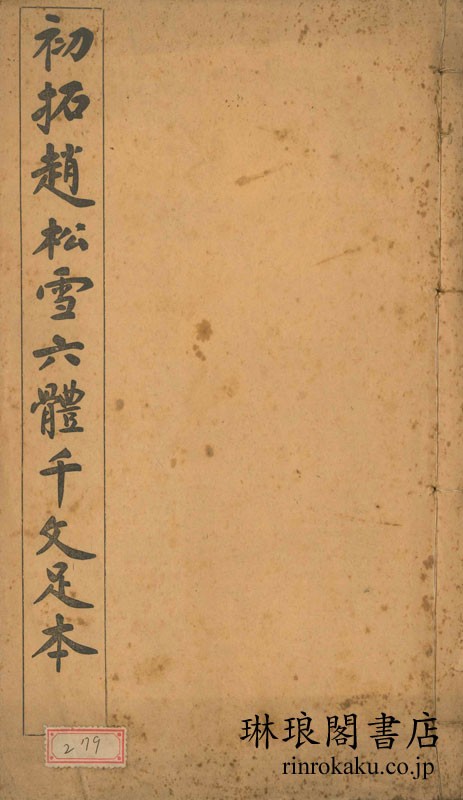 初拓趙松雪六體千文足本
279
琳琅閣書店
rinrokaku.co.jp